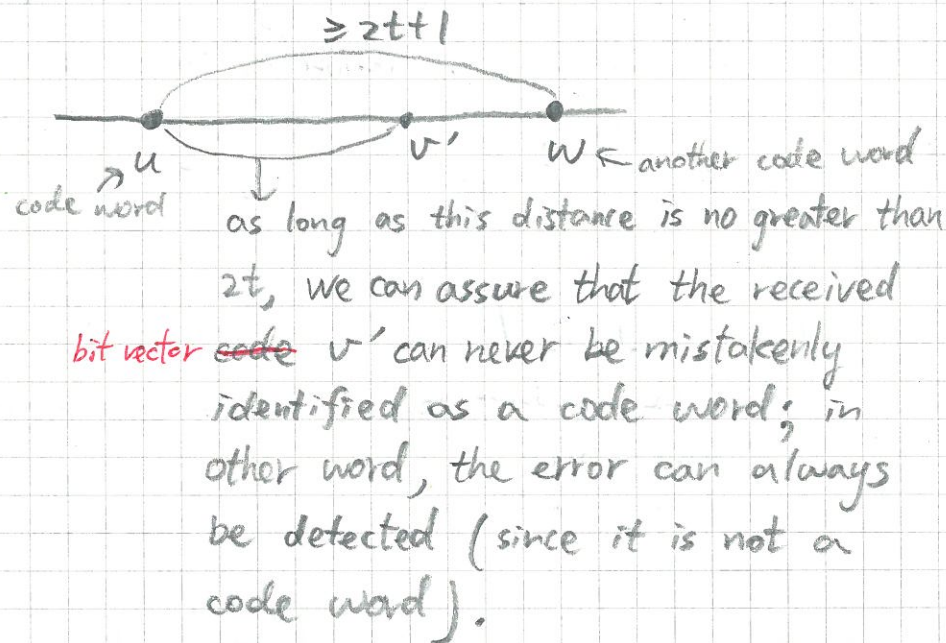 ≥ 2t+1
u v' w ← another code word
code word
as long as this distance is no greater than
2t, we can assure that the received
bit vector code v' can never be mistakenly
identified as a code word; in
other word, the error can always
be detected (since it is not a
code word).